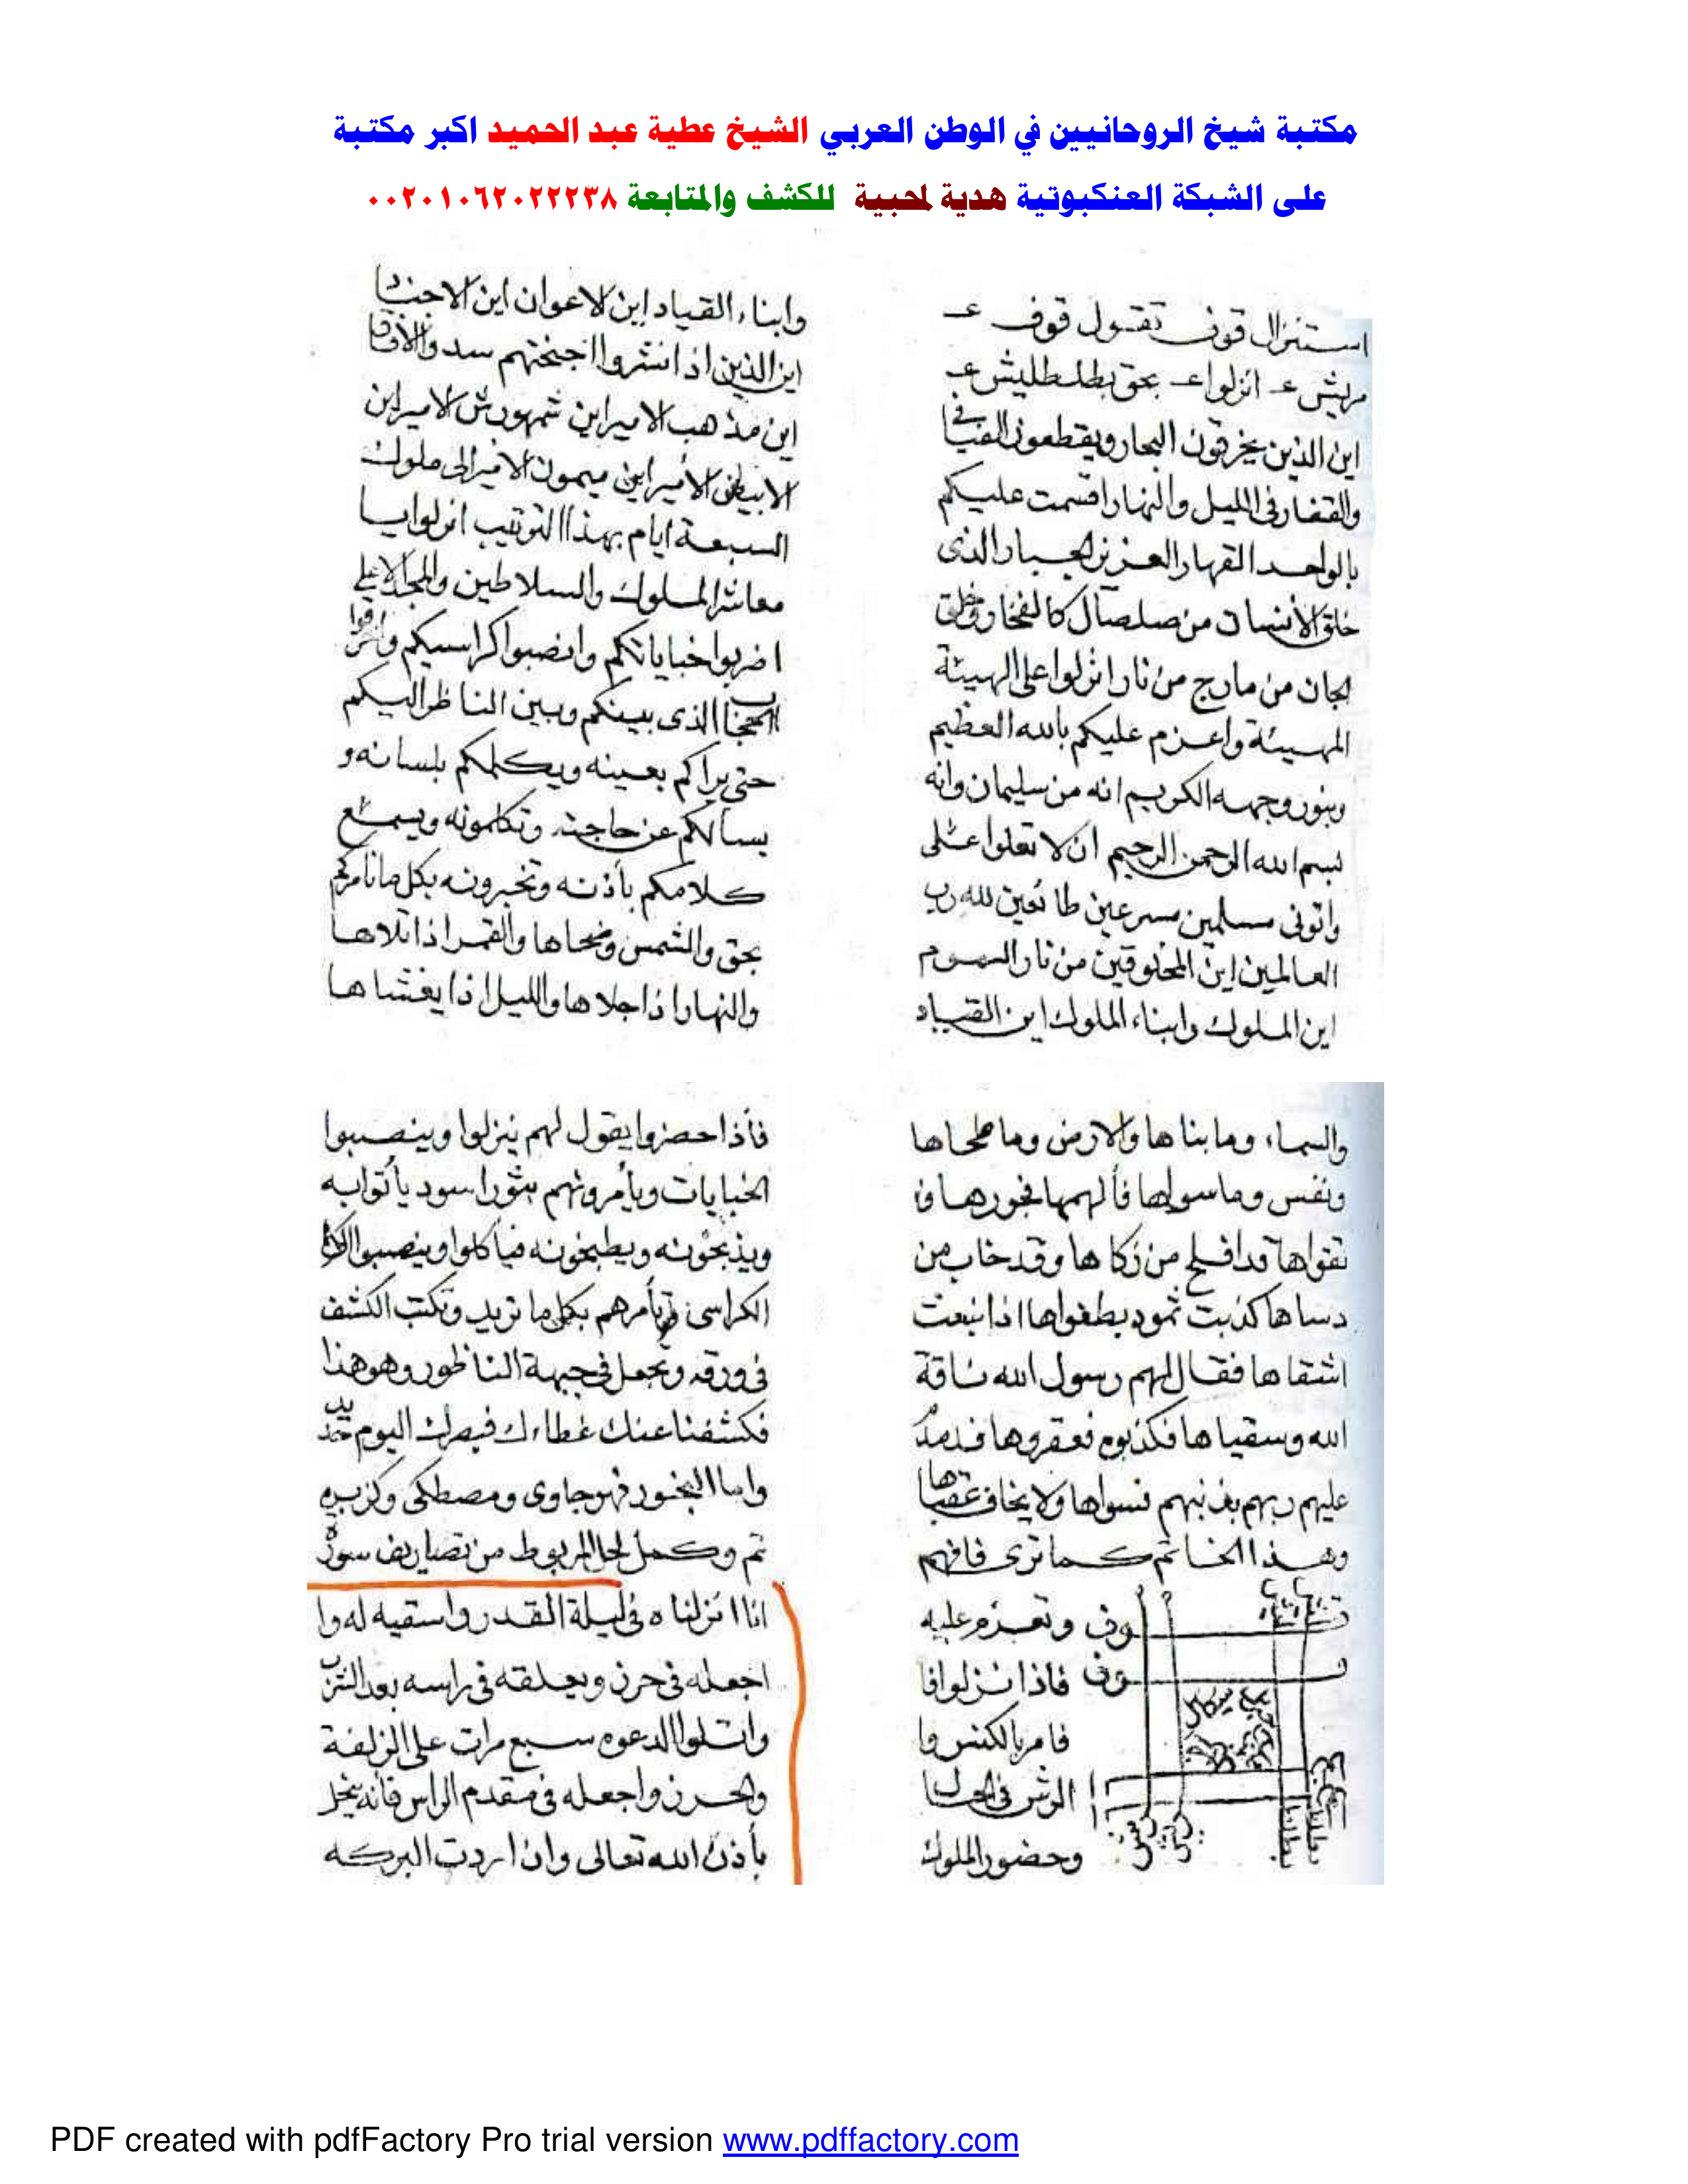 مكتبة شيخ الروحانيين في الوطن العربي الشيخ عطية عبد الحميد اكبر مكتبة
على الشبكة العنكبوتية هدية لمحبية للكشف والمتابعة ٠٠٢٠١٠٦٢٠٢٢٢٣٨
استنزال قوف تقول قوف عـ
مهيش عـ انزلوا عـ بحق بطلطليش عـ
اين الذين يخرقون البحار ويقطعون الفيافى
والقفار فى الليل والنهار اقسمت عليكم
بالواحد القهار العزيز الجبار الذى
خلق الأنسان من صلصال كالفخار وخلق
الجان من مارج من نار انزلوا على الهيئة
المهيئة واعزم عليكم بالله العظيم
وبنور وجهه الكريم انه من سليمان وانه
بسم الله الرحمن الرحيم ان لا تعلوا على
واتونى مسلمين مسرعين طائعين لله رب
العالمين اين المخلوقين من نار السموم
اين الملوك وابناء الملوك اين القياد
وابناء القياد اين لاعوان اين الاجناد
اين الذين اذا نشروا اجنحتهم سدوا الأفاق
اين مذهب الامير اين شمهورش الامير اين
الابيض الأمير اين ميمون الأمير الى ملوك
السبعة ايام بهذا التوتيب انزلوا يا
معاشر الملوك والسلاطين والمجالا على
اضربوا خباياتكم وانصبوا كراسيكم واخرقوا
الحجاب الذى بينكم وبين الناظر اليكم
حتى يراكم بعينه ويكلمكم بلسانه و
يسألكم عن حاجته وتكلمونه ويسمع
كلامكم بأذنه وتخبرونه بكل ما نامركم
بحق والشمس وضحاها والقمر اذا تلاها
والنهار اذا جلاها والليل اذا يغشاها
والسماء وما بناها والارض وما طحاها
ونفس وما سواها فألهمها فجورها و
تقواها قد افلح من زكاها وقد خاب من
دساها كذبت ثمود بطغواها اذا نبعث
اشقاها فقال لهم رسول الله ناقة
الله وسقياها فكذبوه فعقروها فدمدم
عليهم ربهم بذنبهم فسواها ولا يخاف عقباها
وهذا الخاتم كما ترى فافهم
وتعزم عليه
فاذا نزلوا فا
فامر بالكنس وا
الرش فى الحال
وحضور الملوك
فأذا حضروا يقول لهم ينزلوا وينصبوا
الخبايات ويأمرونهم بثور اسود يأتوا به
ويذبحونه ويطبخونه فياكلوا وينصبوا
الكراسى وتأمرهم بكل ما تريد وتكتب الكشف
فى ورقه وتجعل فى جبهة الناظور وهو هذا
فكشفنا عنك غطاءك فبصرك اليوم حديد
واما البخور فهو جاوى ومصطكى وكزبره
تم وكمل لحل المربوط من تصاريف سورة
انا انزلناه فى ليلة القدر واسقيه له وا
اجعله فى حرز ويعلقه فى راسه بعد الشرب
واتلوا الدعوه سبع مرات على الزلفة
والحرز واجعله فى مقدم الراس فانه ينحل
بأذن الله تعالى وان اردت البركه
PDF created with pdfFactory Pro trial version www.pdffactory.com